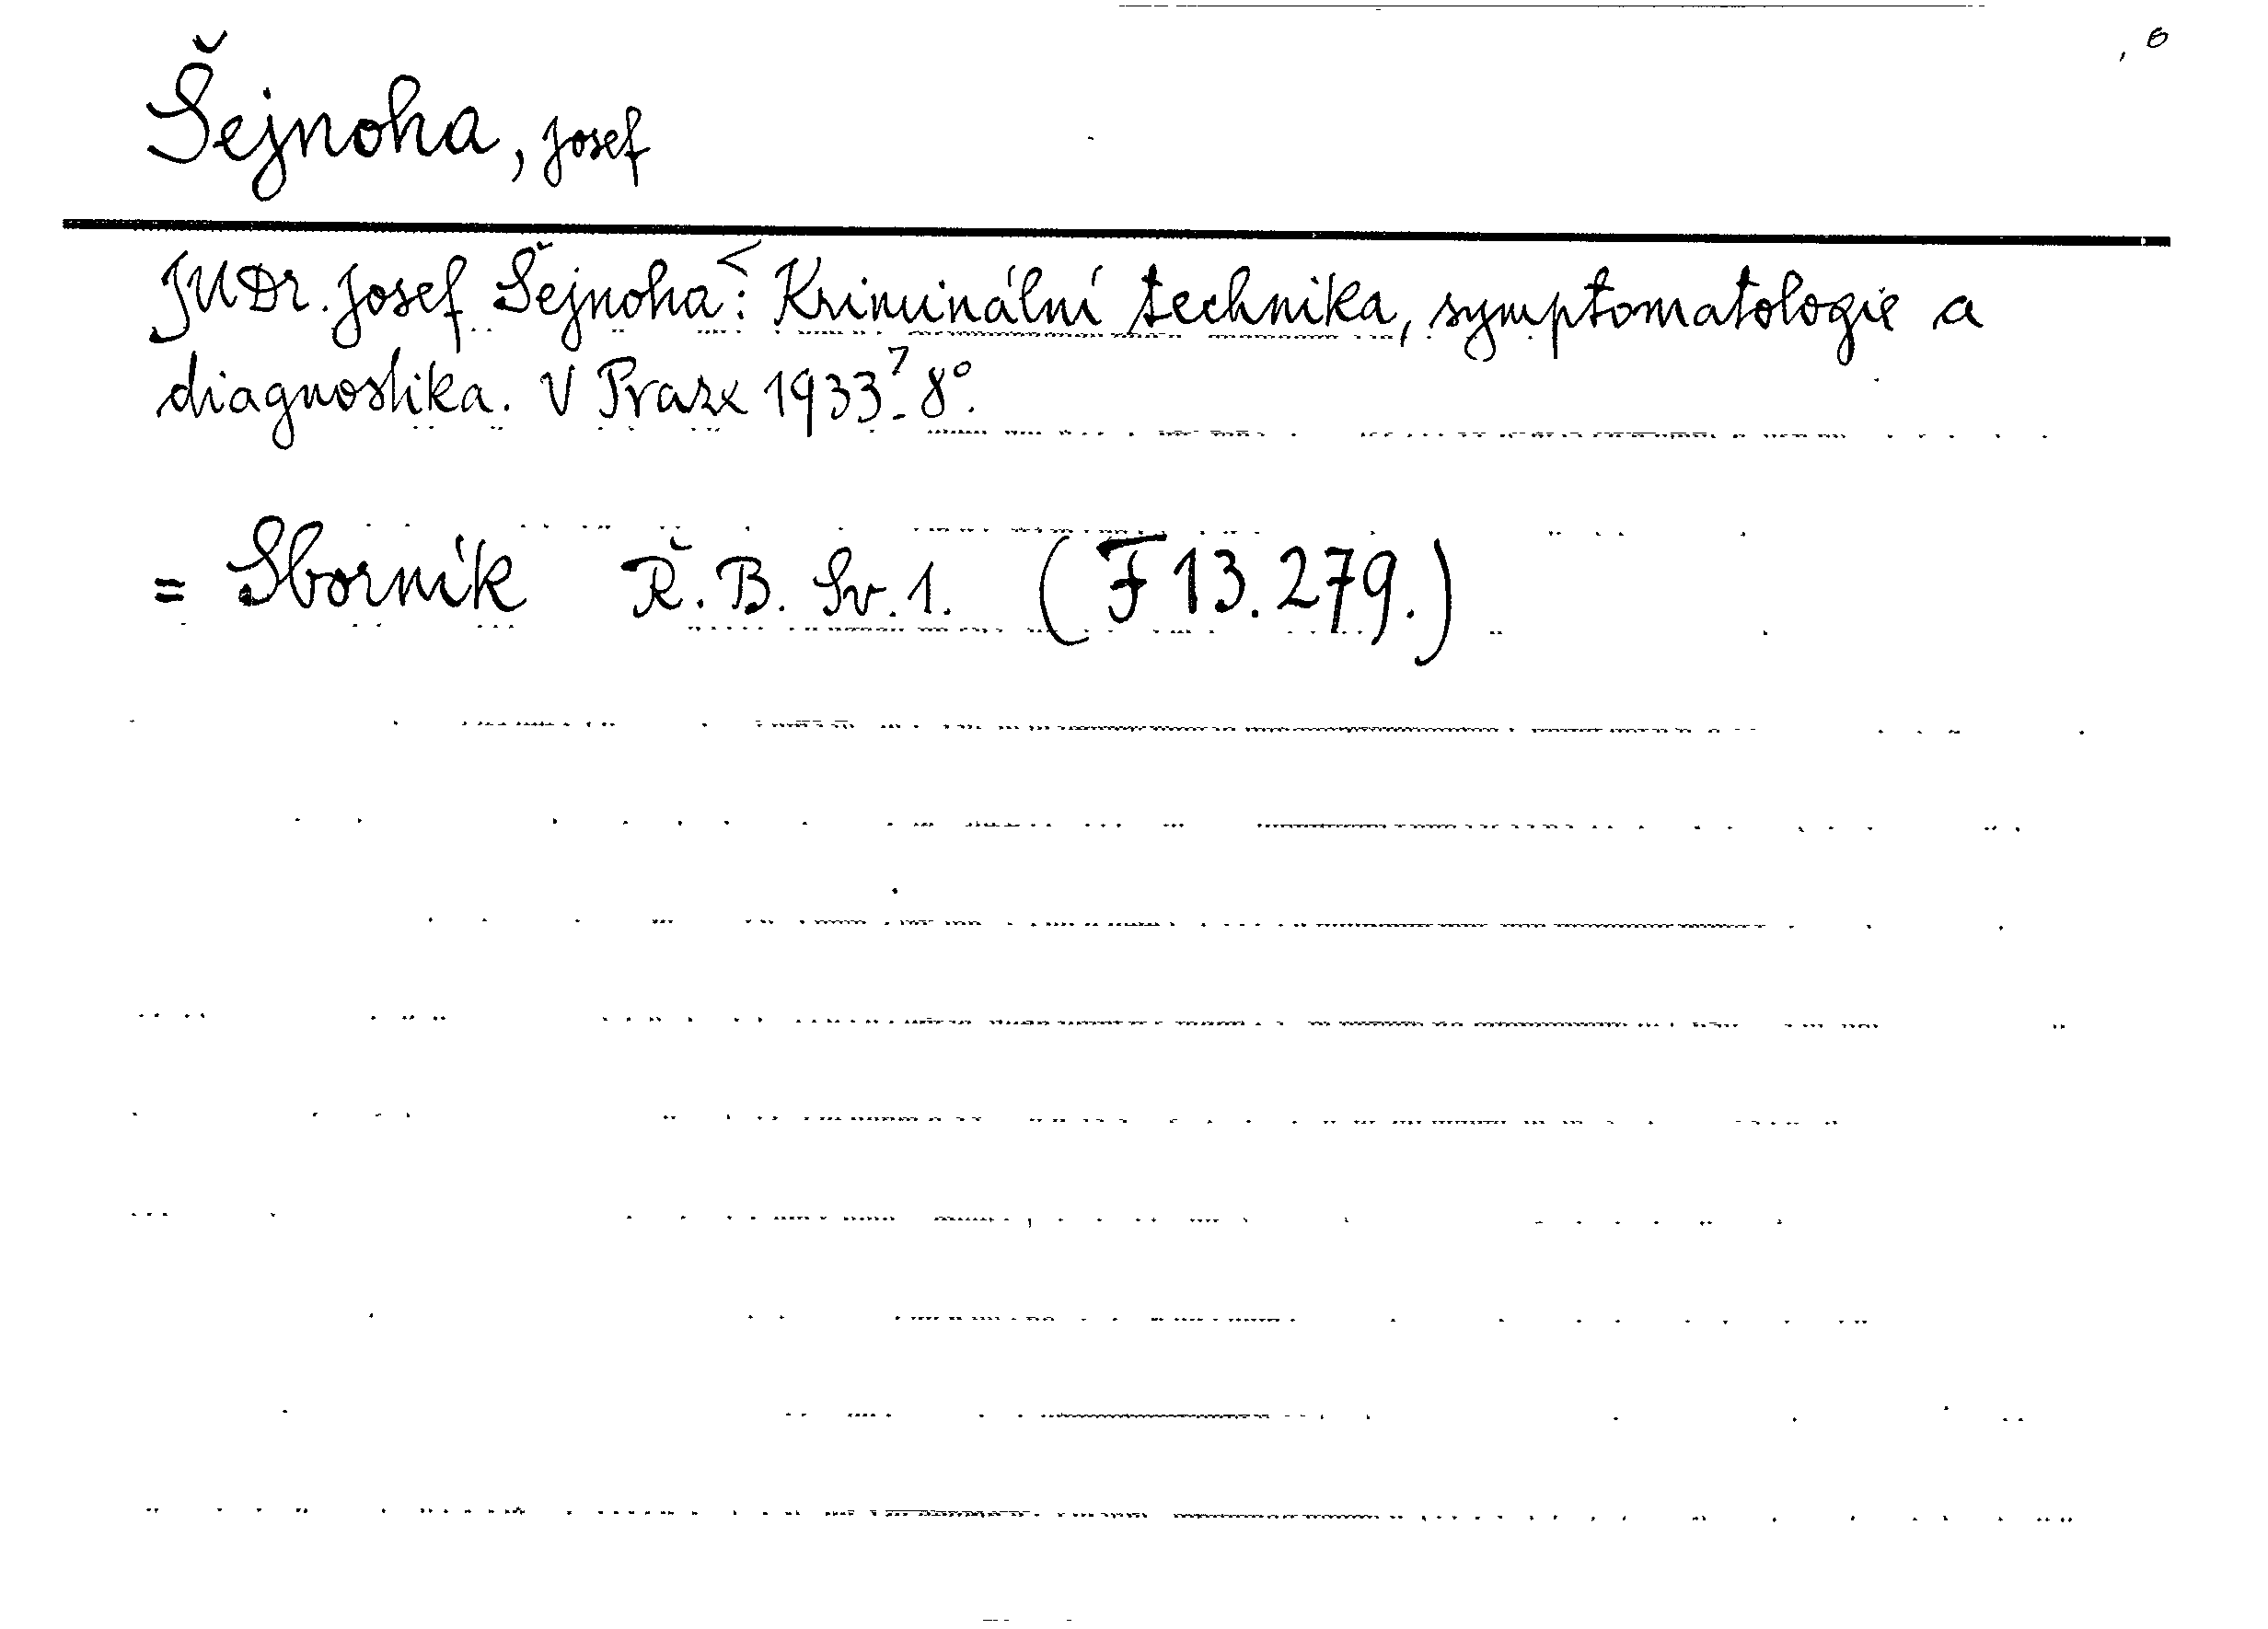 Šejnoha, Josef
JUDr. Josef Šejnoha<: Kriminální technika, symptomatologie a
diagnostika. V Praze 1933⁷. 8°.
= Sborník Ř. B. Sv. 1. (F 13.279.)